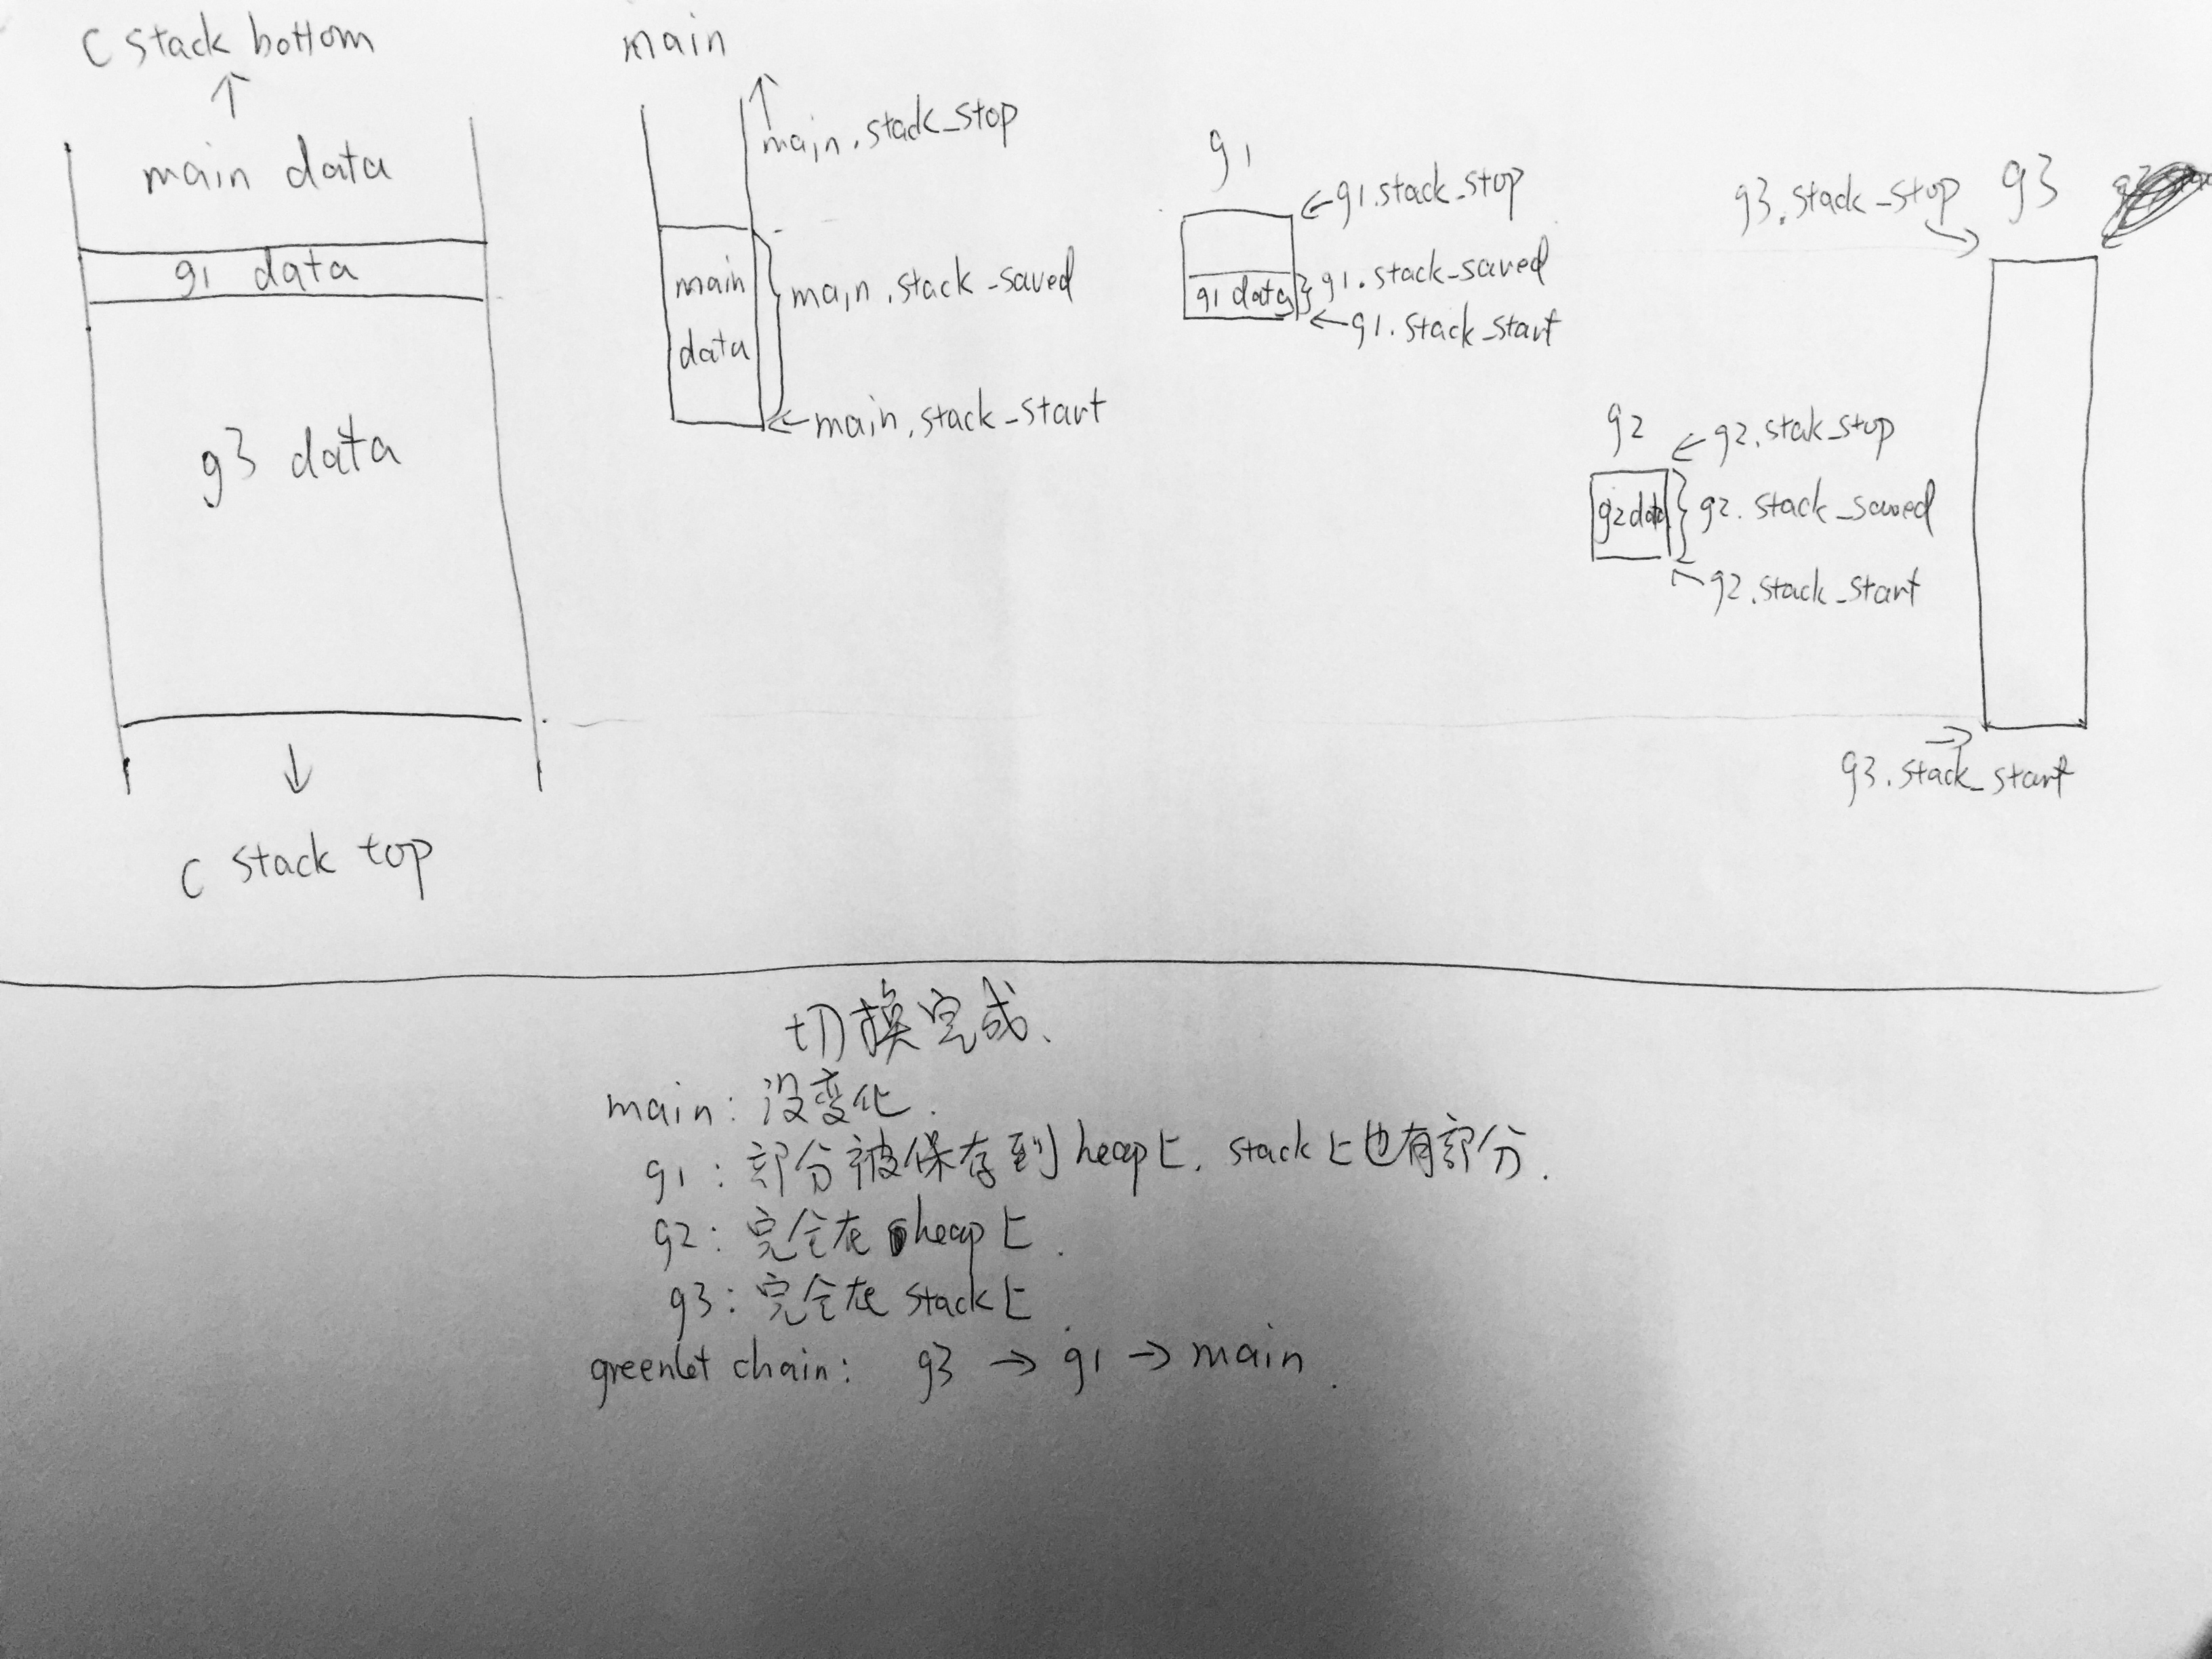 C stack bottom
main data
g1 data
g3 data
C stack top
main
main.stack_stop
main
data
main.stack_saved
main.stack_start
g1
g1.stack_stop
g1 data
g1.stack_saved
g1.stack_start
g2
g2.stak_stop
g2 data
g2.stack_saved
g2.stack_start
g3.stack_stop
g3
g3.stack_start
切换完成.
main: 没变化.
g1: 部分被保存到heap上. stack上也有部分.
g2: 完全在heap上.
g3: 完全在stack上.
greenlet chain: g3 → g1 → main.